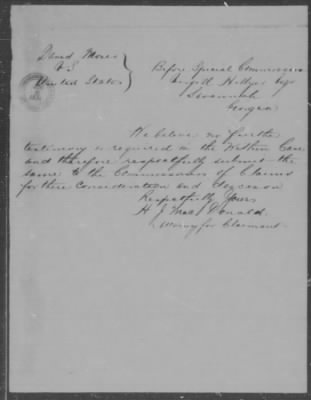 David Moses
VS
United States
Before Special Commissioner
Virgil Hillyer Esqr
Savannah
Georgia
We believe no further
testimony is required in the Within Case
and therefore respectfully submit the
same to the Commissioners of Claims
for there Consideration and Decision
Respectfully Yours
H J MacDonald
Attorney for Claimant